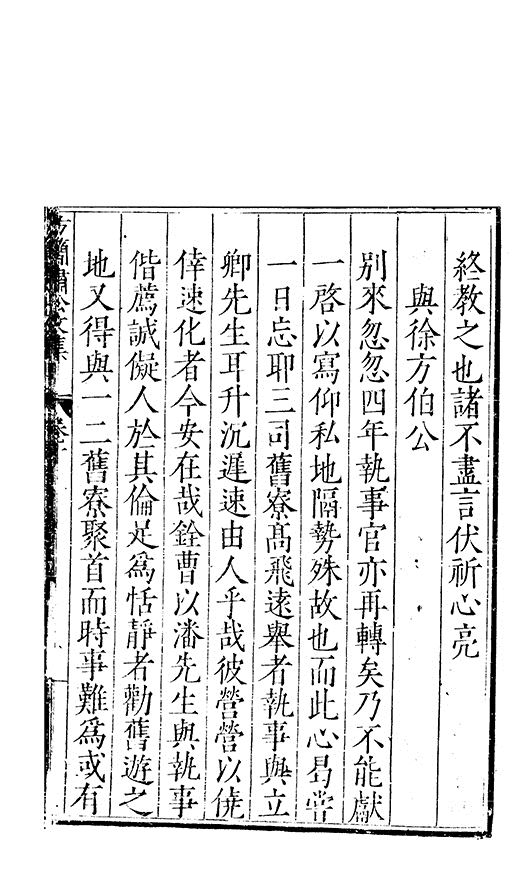 終教之也諸不盡言伏祈心亮
與徐方伯公
別來忽忽四年執事官亦再轉矣乃不能獻
一啓以寫仰私地隔勢殊故也而此心曷嘗
一日忘耶三司舊寮髙飛遠舉者執事與立
卿先生耳升沉遲速由人乎哉彼營營以僥
倖速化者今安在哉銓曹以潘先生與執事
偕薦誠儗人於其倫足爲恬靜者勸舊遊之
地又得與一二舊寮聚首而時事難爲或有
方簡肅公文集